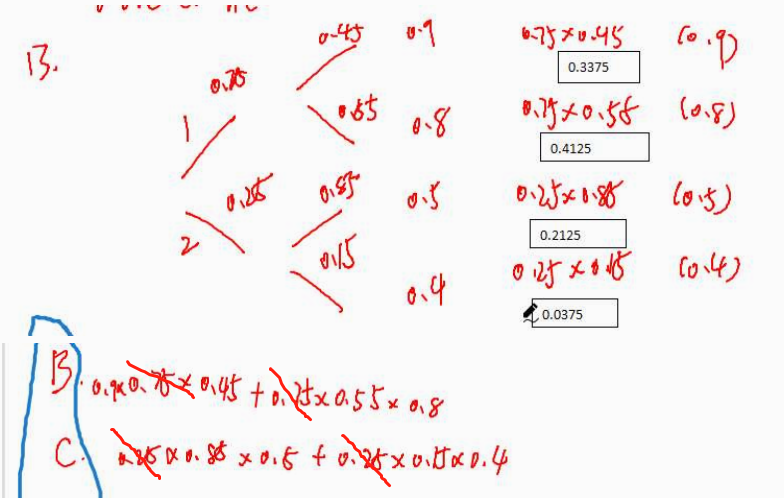 B.
0.45 0.9 0.75×0.45 (0.9)
0.75 0.3375
0.55 0.8 0.75×0.55 (0.8)
1
0.4125
0.25 0.85 0.5 0.25×0.85 (0.5)
2 0.2125
0.15 0.4 0.25×0.15 (0.4)
0.0375
B. 0.9×0.75×0.45+0.75×0.55×0.8
C. 0.25×0.85×0.5+0.25×0.15×0.4